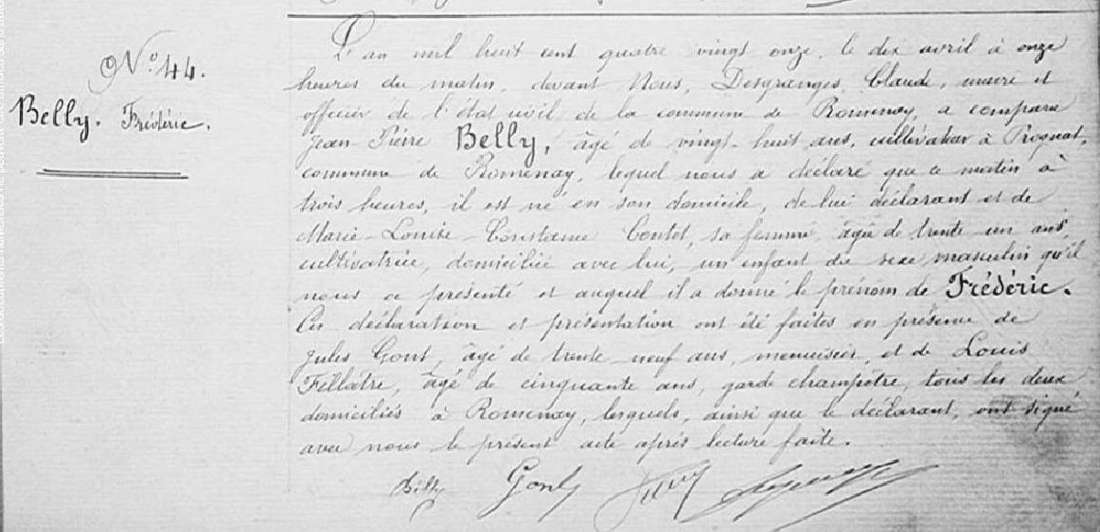 N° 44.
Belly. Frédéric.
L'an mil huit cent quatre vingt onze, le dix avril à onze
heures du matin, devant Nous, Desgranges, Claude, maire et
officier de l'état civil de la commune de Romenay, a comparu
Jean-Pierre Belly, âgé de vingt-huit ans, cultivateur à
commune de Romenay, lequel nous a déclaré que ce matin à
trois heures, il est né en son domicile, de lui déclarant et de
Marie-Louise-Constance sa femme, âgée de trente un ans,
cultivatrice, domiciliée avec lui, un enfant du sexe masculin qu'il
nous a présenté et auquel il a donné le prénom de Frédéric.
Ces déclaration et présentation ont été faites en présence de
Jules Gont, âgé de trente neuf ans, menuisier, et de Louis
Fillâtre, âgé de cinquante ans, garde champêtre, tous les deux
domiciliés à Romenay, lesquels, ainsi que le déclarant, ont signé
avec nous le présent acte après lecture faite.
Belly Gont